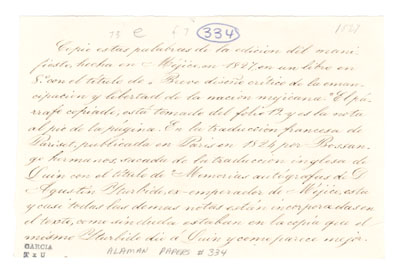 13 e 334 1827
Copio estas palabras de la edicion del mani-
fiesto, hecha en Méjico, en 1827, en un libro en
8º con el título de "Breve diseño crítico de la eman-
cipacion y libertad de la nacion mejicana." El pá-
rrafo copiado, está tomado del folio 12 y es la nota
al pié de la pagina. En la traduccion francesa de
Parisot, publicada en Paris en 1824 por Bossan-
ge hermanos, sacada de la traduccion inglesa de
Quin con el título de Memorias autógrafas de D.
Agustin Iturbide, ex-emperador de Méjico, esta
y casi todas las demas notas están incorporadas en
el texto, como sin duda estaban en la copia que el
mismo Iturbide dió á Quin y como parece mejor.
GARCIA
ALAMAN PAPERS #334